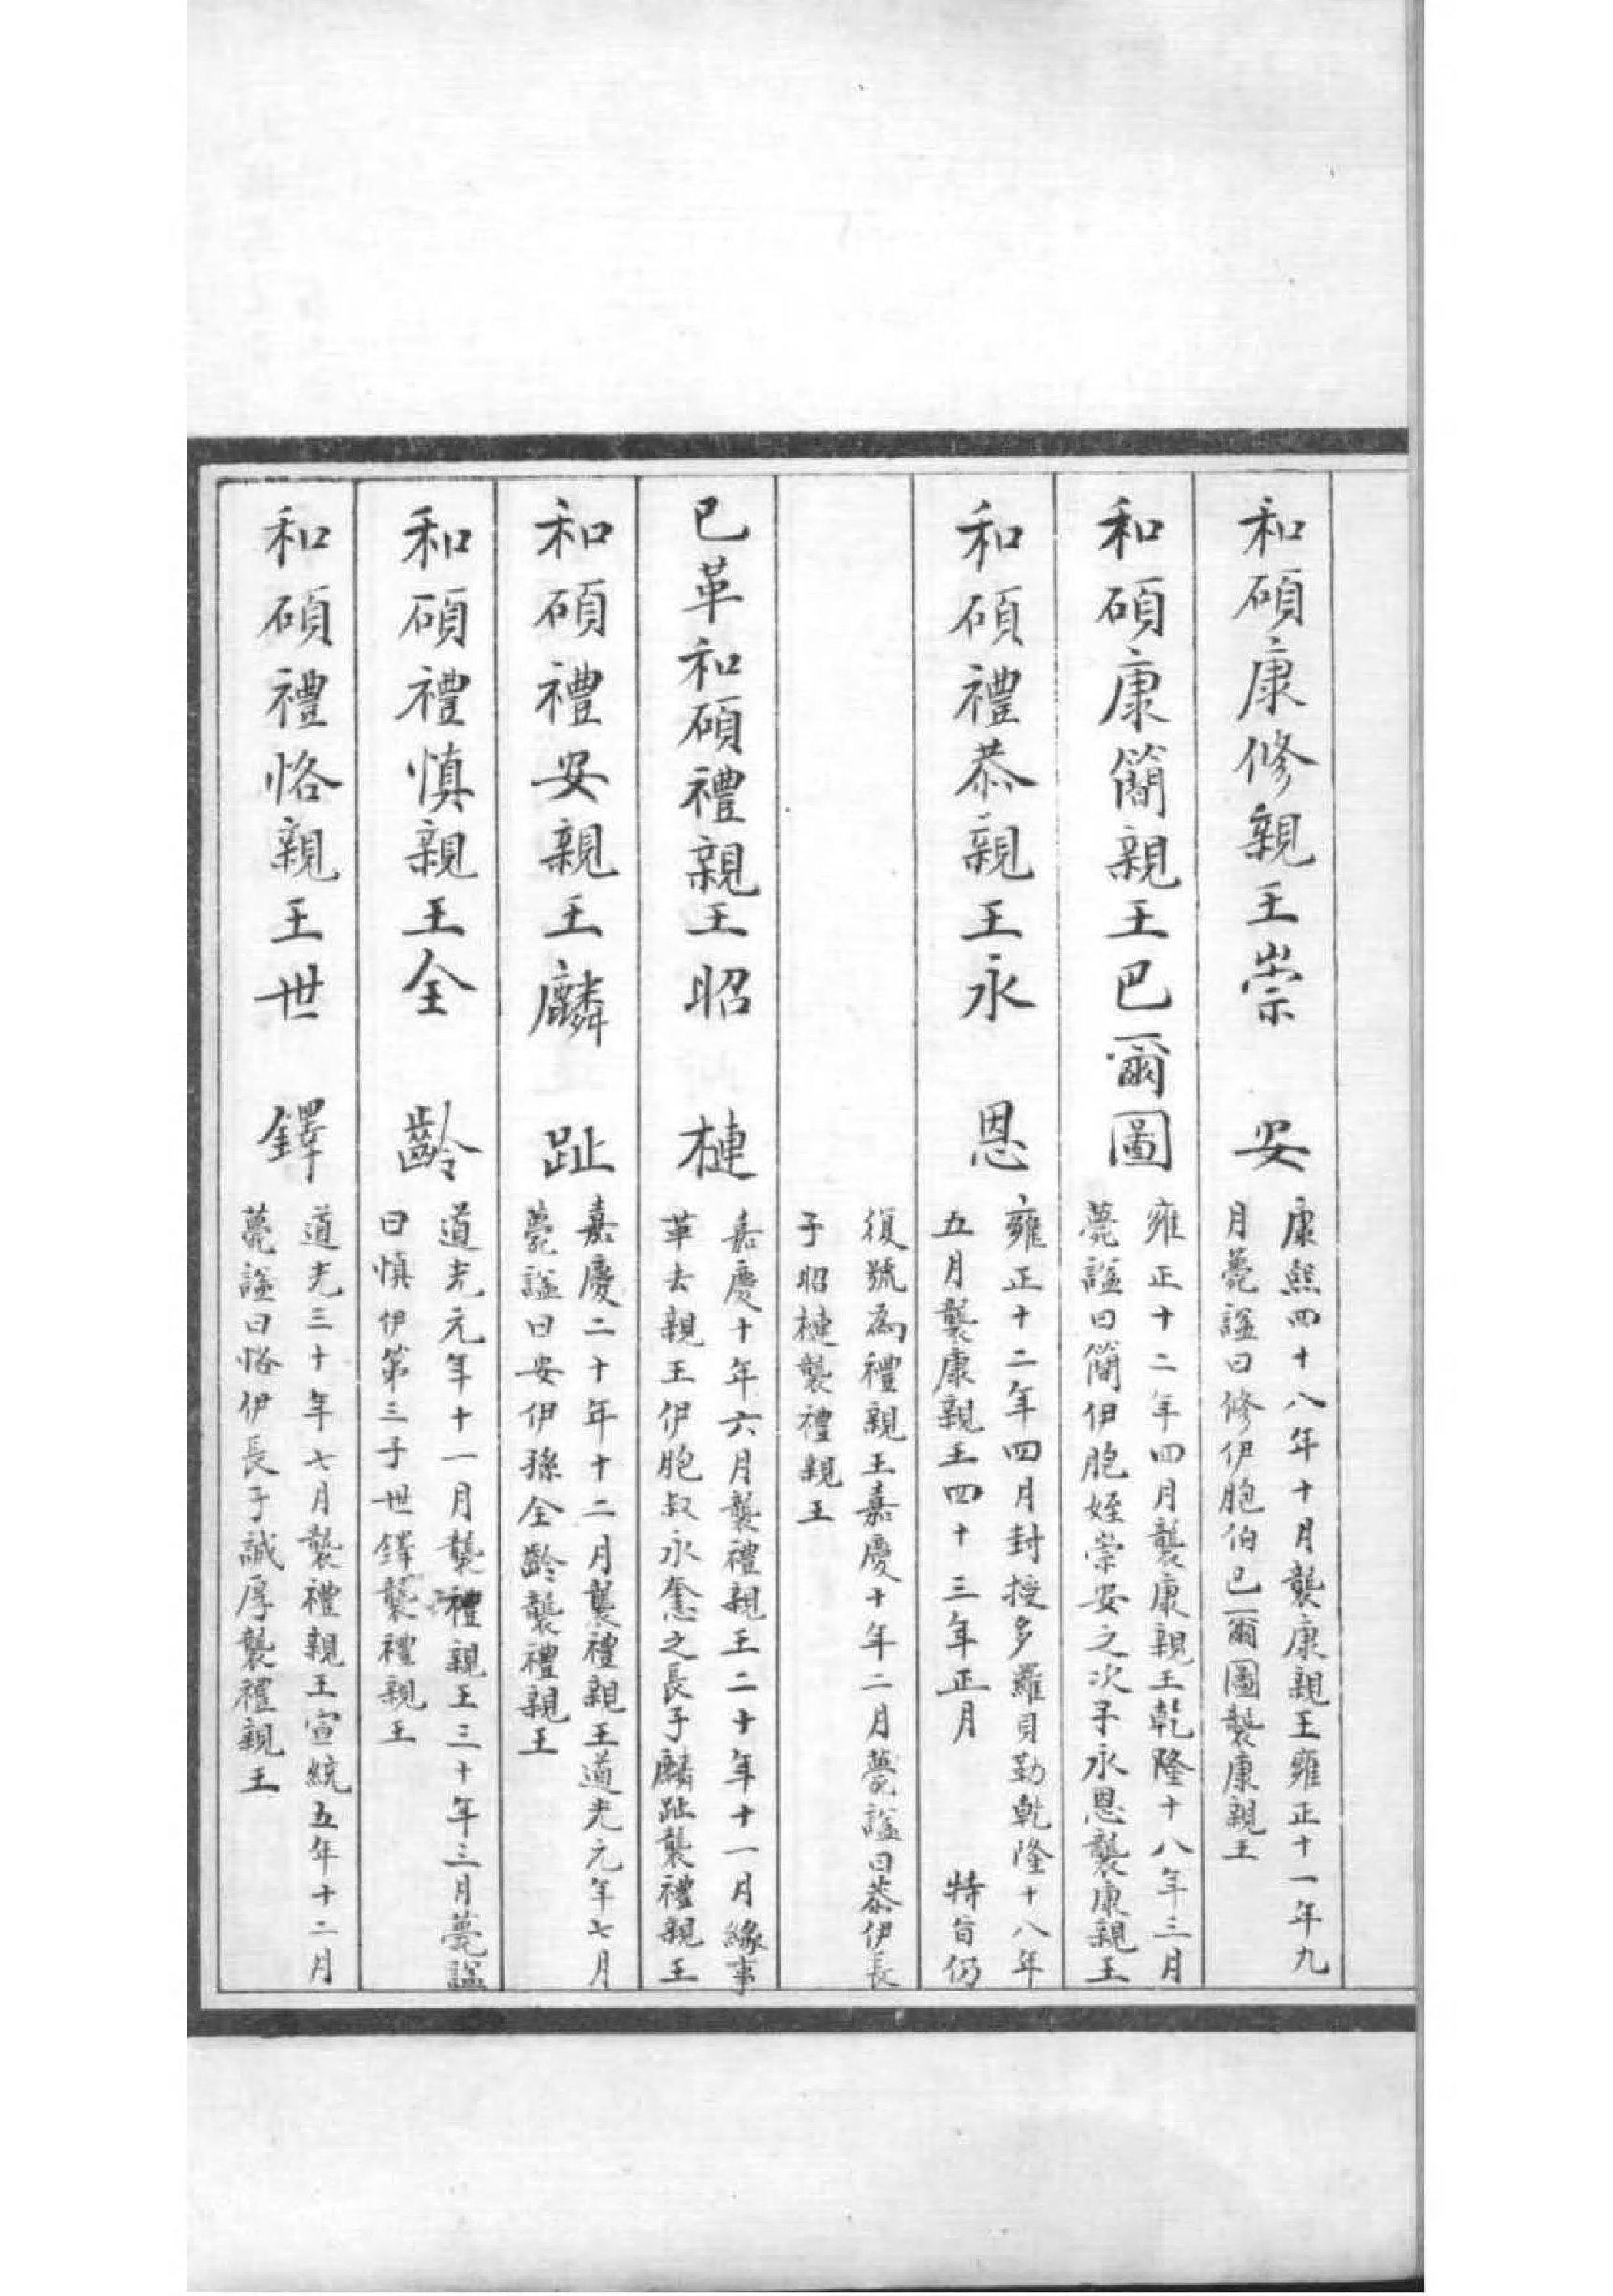 和碩康修親王崇安
康熙四十八年十月襲康親王雍正十一年九
月薨謚曰修伊胞伯巴爾圖襲康親王
和碩康簡親王巴爾圖
雍正十二年四月襲康親王乾隆十八年三月
薨謚曰簡伊胞姪崇安之次子永恩襲康親王
和碩禮恭親王永恩
雍正十二年四月封授多羅貝勒乾隆十八年
五月襲康親王四十三年正月 特旨仍
復號為禮親王嘉慶十年二月薨謚曰恭伊長
子昭槤襲禮親王
已革和碩禮親王昭槤
嘉慶十年六月襲禮親王二十年十一月緣事
革去親王伊胞叔永𢠛之長子麟趾襲禮親王
和碩禮安親王麟趾
嘉慶二十年十二月襲禮親王道光元年七月
薨謚曰安伊孫全齡襲禮親王
和碩禮慎親王全齡
道光元年十一月襲禮親王三十年三月薨謚
曰慎伊第三子世鐸襲禮親王
和碩禮恪親王世鐸
道光三十年七月襲禮親王宣統五年十二月
薨謚曰恪伊長子誠厚襲禮親王